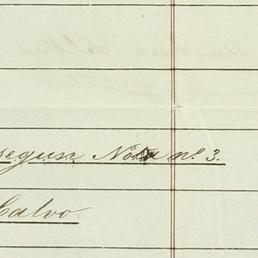 segun Nota nº 3.
Calvo.